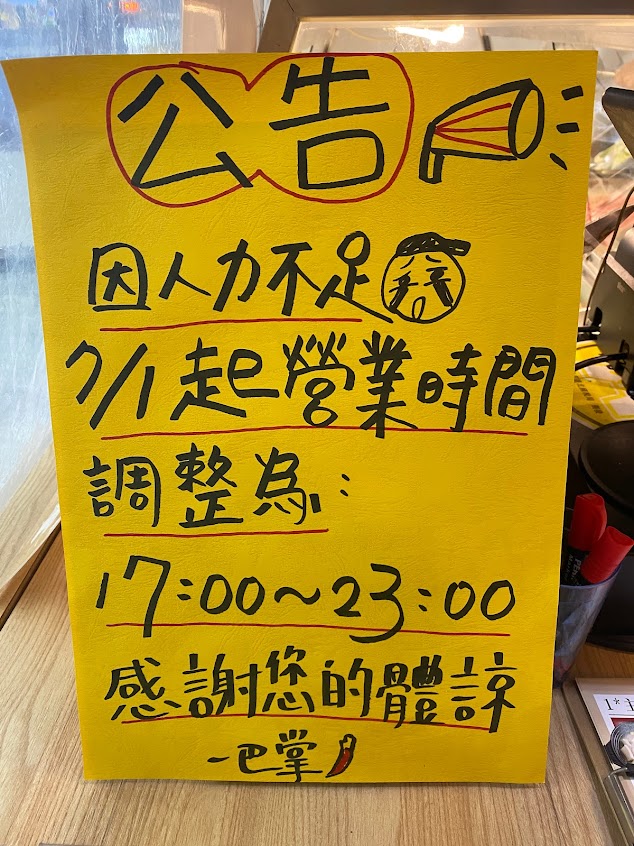 公告
因人力不足
7/1起營業時間
調整為:
17:00~23:00
感謝您的體諒
一巴掌